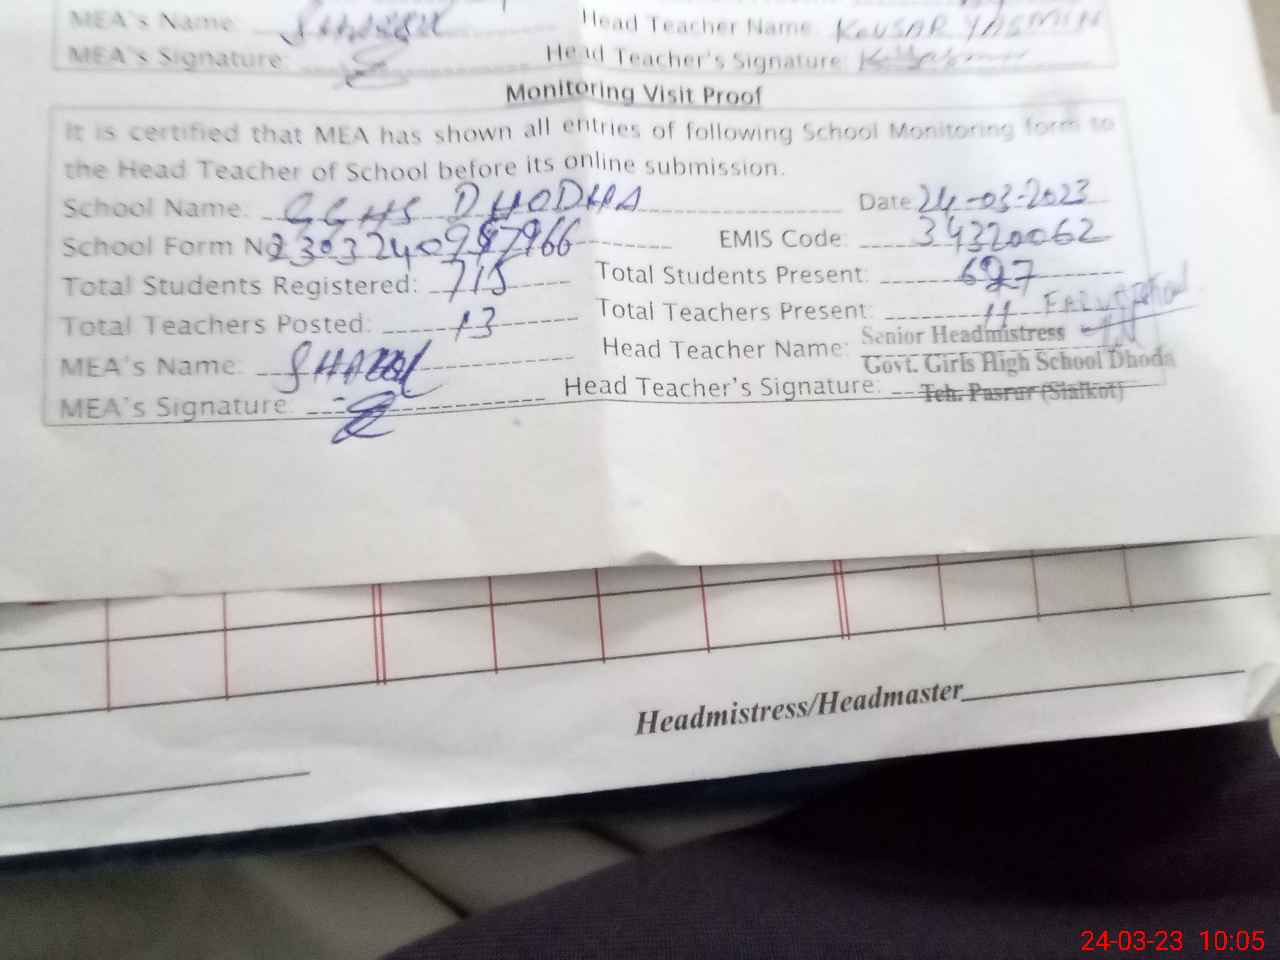 MEA's Name: Head Teacher Name: KOUSAR YASMIN
MEA's Signature: Head Teacher's Signature:
Monitoring Visit Proof
It is certified that MEA has shown all entries of following School Monitoring form to
the Head Teacher of School before its online submission.
School Name: GGHS DHODHA Date: 24-03-2023
School Form No EMIS Code: 34320062
Total Students Registered: 715 Total Students Present:
Total Teachers Posted: 13 Total Teachers Present: 11
MEA's Name: Head Teacher Name: Senior Headmistress
Govt. Girls High School Dhoda
MEA's Signature: Head Teacher's Signature: Teh. Pasrur (Sialkot)
Headmistress/Headmaster
24-03-23 10:05